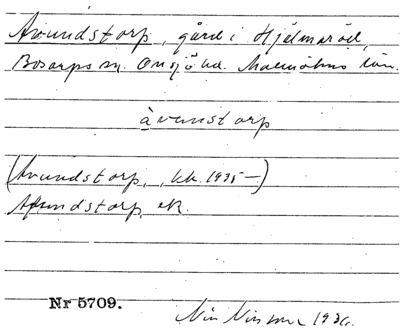 Avundstorp, gård i Hjelmaröd,
Bosarps sn. Onsjö hd. Malmöhus län.
àvunstorp
(Avundstorp, kk. 1935 —)
Afundstorp, ek.
Nr 5709.
1936.